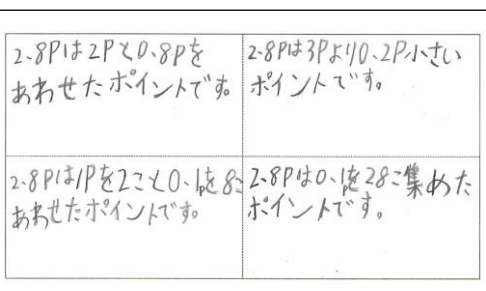 2.8Pは2Pと0.8Pを
あわせたポイントです。
2.8Pは3Pより0.2P小さい
ポイントです。
2.8Pは1Pを2こと0.1Pを8こ
あわせたポイントです。
2.8Pは0.1Pを28こ集めた
ポイントです。